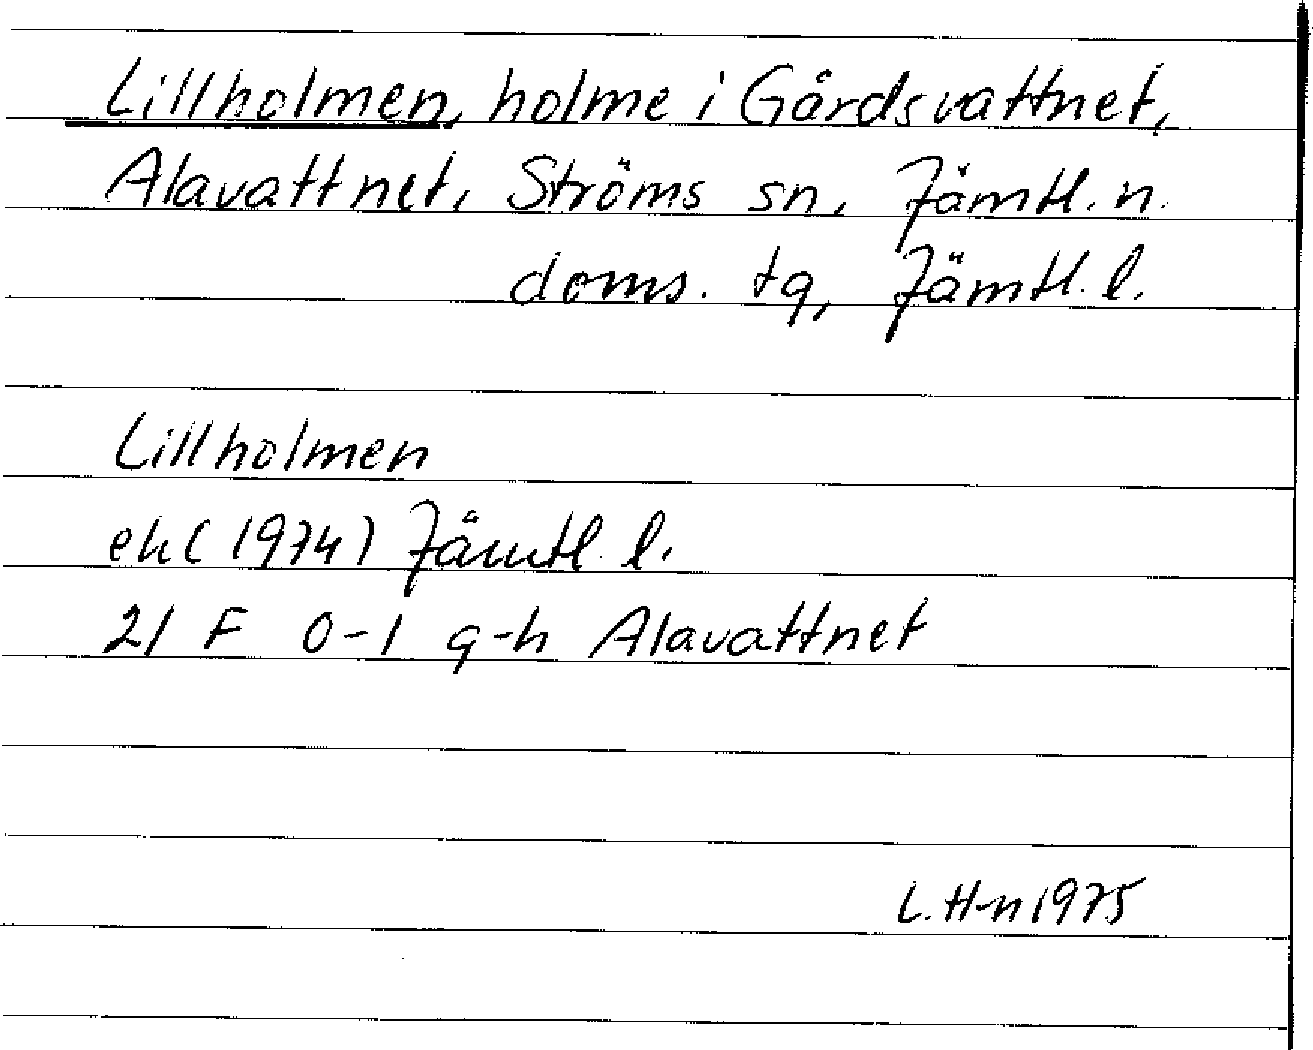 Lillholmen, holme i Gårdsvattnet,
Alavattnet, Ströms sn, Jämtl. n.
doms. tg, Jämtl. l.
Lillholmen
ek (1974) Jämtl. l.
21 F 0-1 g-h Alavattnet
L. H-n 1975